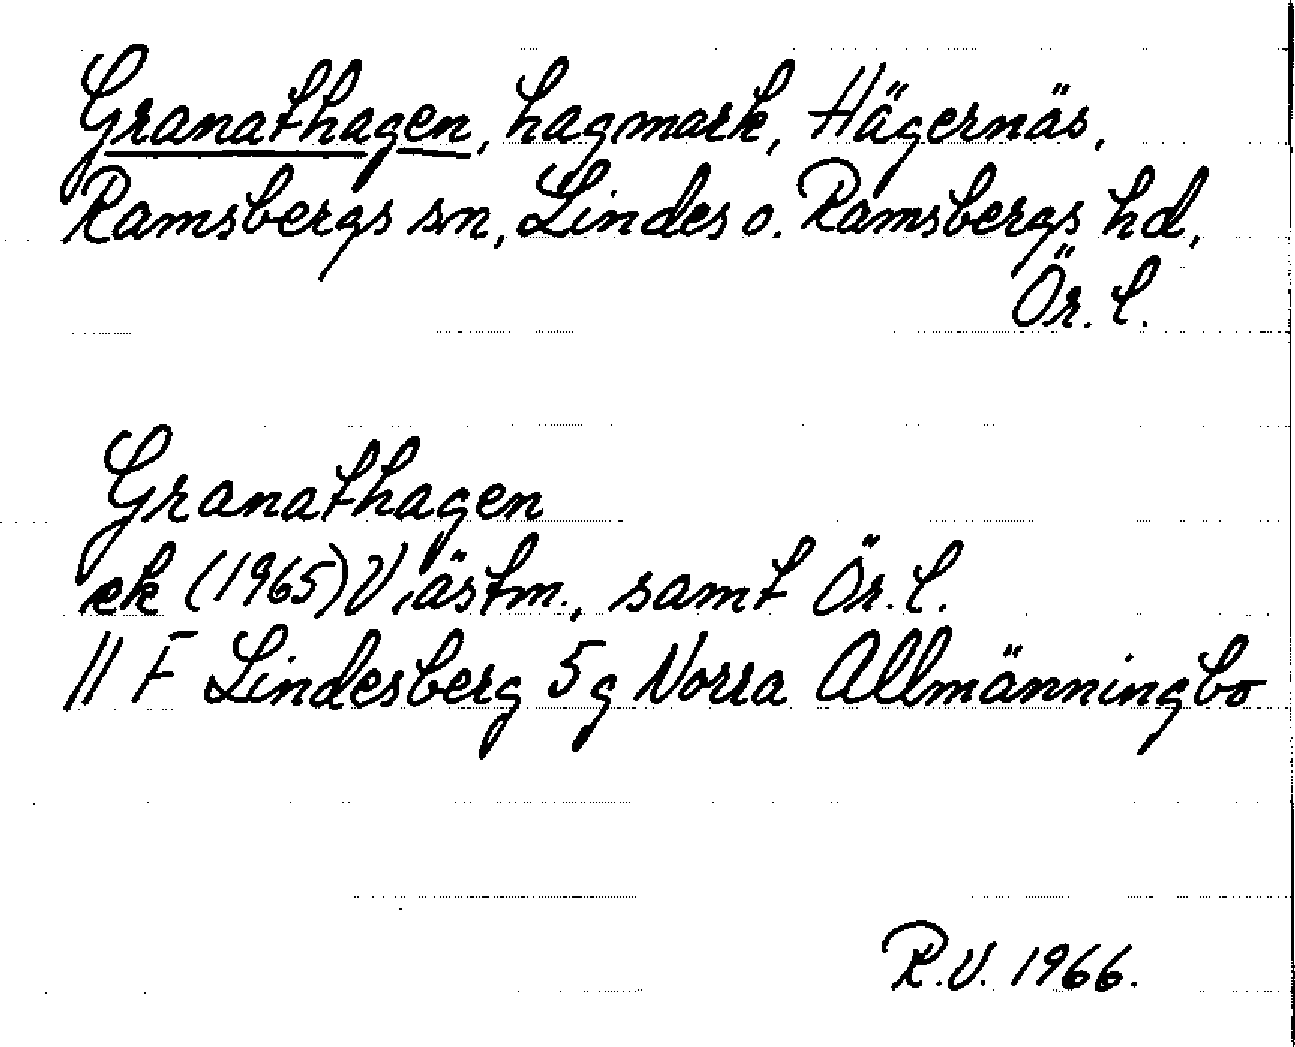 Granathagen, hagmark, Hägernäs,
Ramsbergs sn, Lindes o. Ramsbergs hd,
Ör. l.
Granathagen
ek (1965) Västm., samt Ör. l.
11 F Lindesberg 5g Norra Allmänningbo
R.V. 1966.